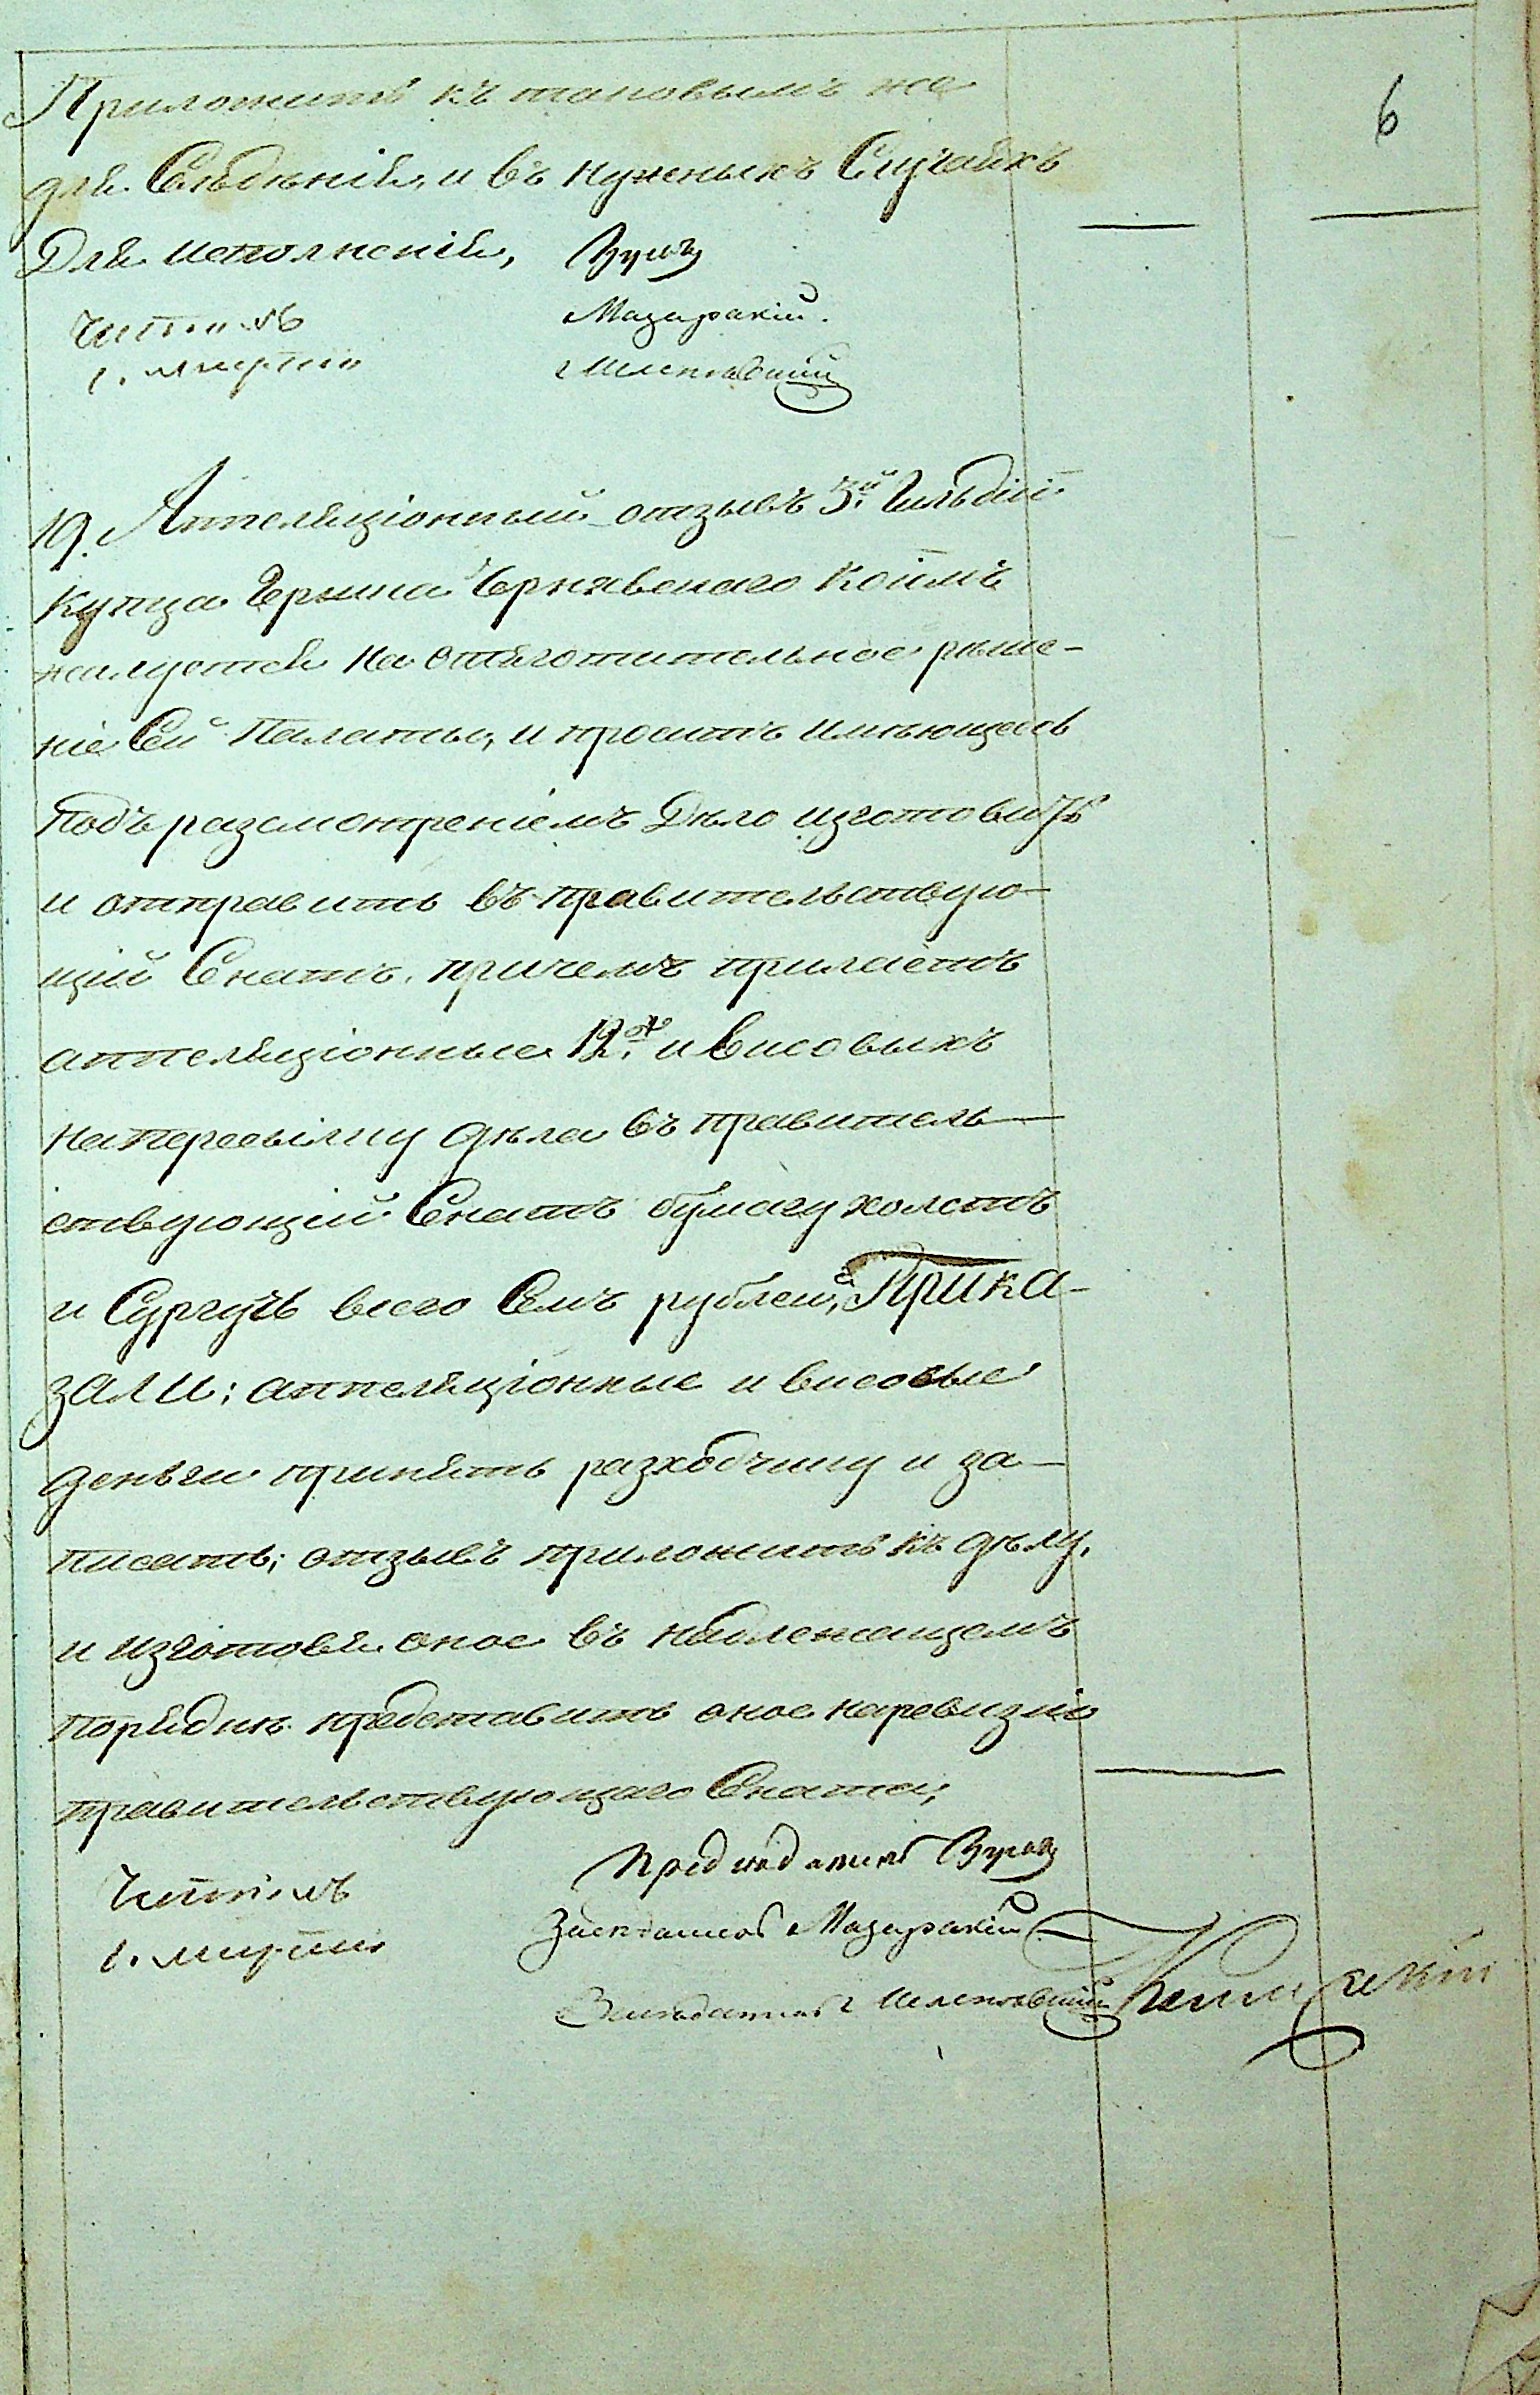 6
Приложить къ таковымъ же
для Свѣдѣнія, и въ нужныхъ Случаяхъ
Для исполненія,
Мазаракій.
19. Аппеляціонный отзывъ 3й. Гильдіи
купца Гершка Чернявскаго коимъ
жалуется на отяготительное рѣше-
ніе Сей Палаты, и проситъ имѣющееся
подъ разсмотреніемъ Дѣло изготовить
и отправить въ правительствую-
щій Сенатъ. причемъ прилаетъ
аппеляціонные 12. и висовыхъ
на пересылку дѣла въ правитель-
ствующій Сенатъ бумагу холстъ
и Сургучъ всего Семъ рублей, Прика-
зали: аппеляціонные и висовые
деньги принять разходчику и за-
писать; отзывъ приложить къ дѣлу,
и изготовя оное въ надлежащемъ
порядкѣ представить оное на ревизію
правительствующаго Сената,
Предсѣдатель
Засѣдатель Мазаракій
Засѣдатель